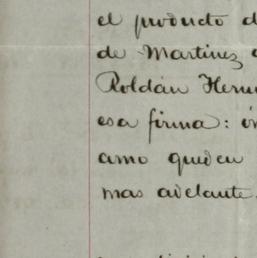 el producto d
de Martinez
Roldán Hern
esa firma: in
amo queden
mas adelante.